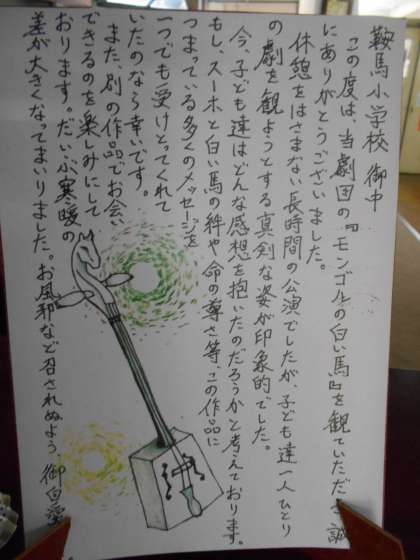 鞍馬小学校 御中
この度は、当劇団の『モンゴルの白い馬』を観ていただき誠
にありがとうございました。
休憩をはさまない長時間の公演でしたが、子ども達一人ひとり
の劇を観ようとする真剣な姿が印象的でした。
今、子ども達はどんな感想を抱いたのだろうかと考えております。
もし、スーホと白い馬の絆や命の尊さ等、この作品に
つまっている多くのメッセージを
一つでも受けとってくれて
いたのなら幸いです。
また、別の作品でお会い
できるのを楽しみにして
おります。だいぶ寒暖の
差が大きくなってまいりました。お風邪など召されぬよう、御自愛